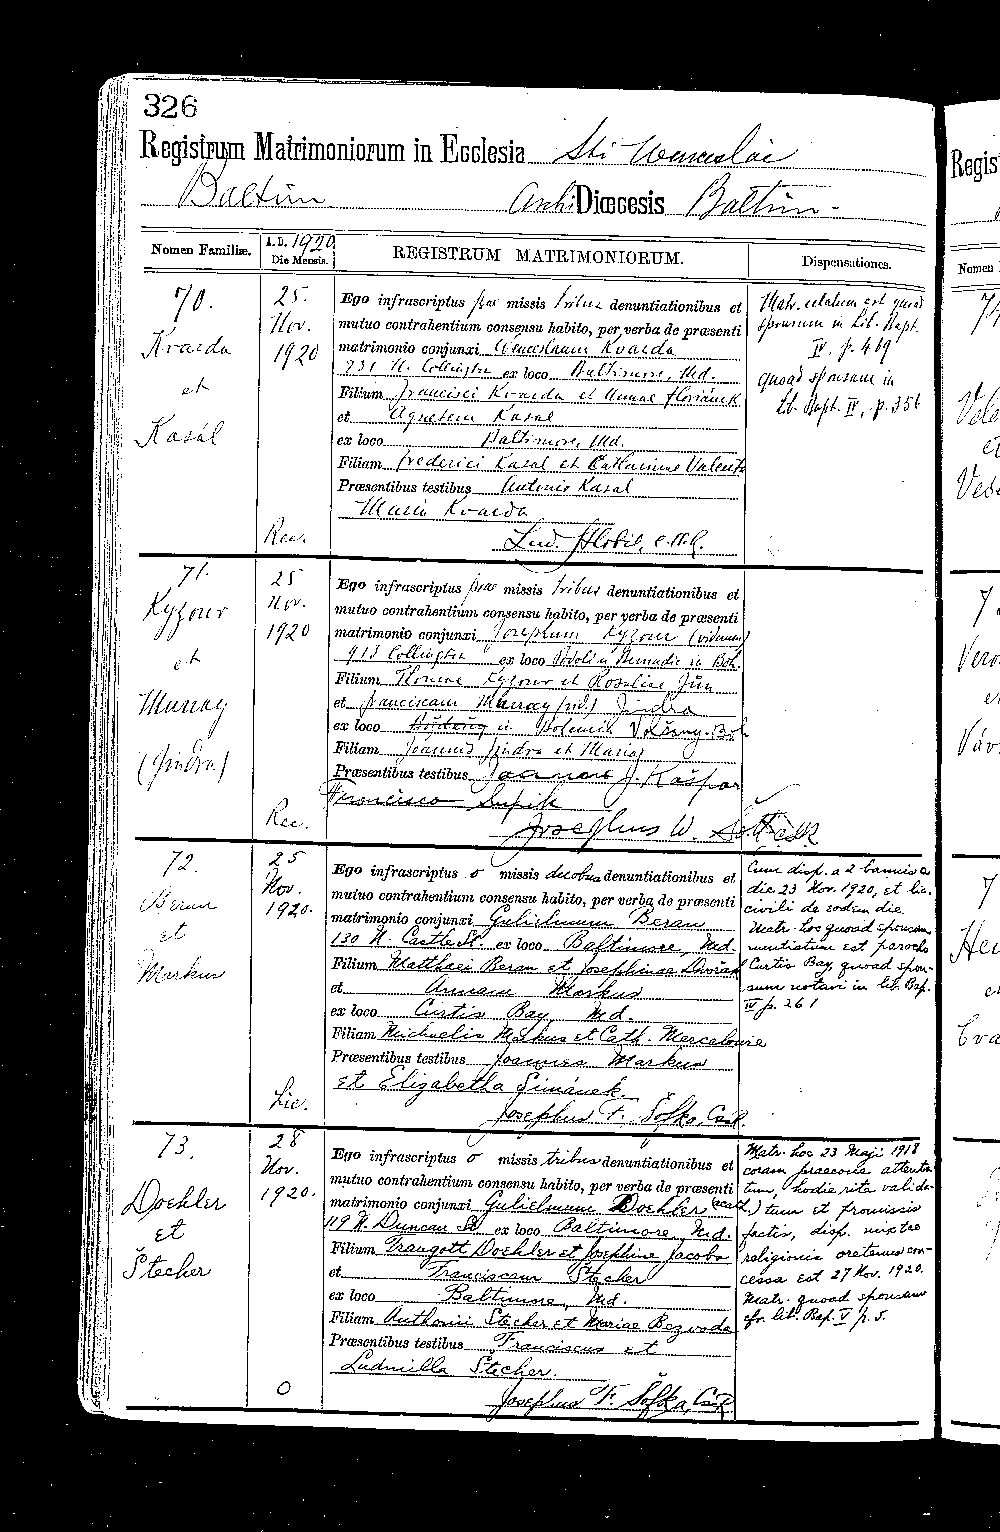 326
Registrum Matrimoniorum in Ecclesia Sti Wenceslai
Baltim. ArchiDiœcesis Baltim.
Nomen Familiæ.
A.D. 1920
Die Mensis.
REGISTRUM MATRIMONIORUM.
Dispensationes.
70.
Kvarda
et
Kasal
25.
Nov.
1920
Rec.
Ego infrascriptus præ missis tribus denuntiationibus et
mutuo contrahentium consensu habito, per verba de præsenti
matrimonio conjunxi Wenceslaum Kvarda
931 N. Collington ex loco Baltimore, Md.
Filium Francisci Kvarda et Annae Floriánek
et Agnetem Kasal
ex loco Baltimore, Md.
Filiam Frederici Kasal et Catharinae Valenta
Præsentibus testibus Antonio Kasal
Maria Kvarda
Lud.
Matr. relatum est quoad
sponsum in Lib. Bapt.
IV. p. 469
quoad sponsam in
Lib. Bapt. IV, p. 356
71.
Kyzour
et
Murray
(Jindra)
25
Nov.
1920
Rec.
Ego infrascriptus præ missis tribus denuntiationibus et
mutuo contrahentium consensu habito, per verba de præsenti
matrimonio conjunxi Josephum Kyzour (viduum)
913 Collington ex loco in Boh.
Filium Thomae Kyzour et Rosaliae
et Franciscam Murray (vid.) Jindra
ex loco in
Filiam Joannis Jindra et Mariae
Præsentibus testibus Joanne J. Kašpar
Francisco Supik
Josephus W.
72.
Beran
et
Markus
25
Nov.
1920.
Lic.
Ego infrascriptus o missis duobus denuntiationibus et
mutuo contrahentium consensu habito, per verba de præsenti
matrimonio conjunxi Gulielmum Beran
130 N. Castle St. ex loco Baltimore, Md.
Filium Matthaei Beran et Josephinae Dvořak
et Annam Markus
ex loco Curtis Bay, Md.
Filiam Michaelis Markus et Cath.
Præsentibus testibus Joannes Markus
et Elizabetha Šimánek.
Josephus F. Šofka, CssR.
Cum disp. a 2 bannis
die 23 Nov. 1920, et lic.
civili de eodem die.
Matr. hoc quoad sponsam
nuntiatum est parocho
Curtis Bay, quoad spon-
sum notavi in lib. Bap.
IV p. 261
73.
Doehler
et
Stecher
28
Nov.
1920.
O
Ego infrascriptus o missis tribus denuntiationibus et
mutuo contrahentium consensu habito, per verba de præsenti
matrimonio conjunxi Gulielmum Doehler (acath.)
119 N. Duncan St ex loco Baltimore, Md.
Filium Traugott Doehler et Josephine Jacobs
et Franciscam Stecher
ex loco Baltimore, Md.
Filiam Anthonii Stecher et Mariae Bezvoda
Præsentibus testibus Franciscus et
Ludmilla Stecher.
Josephus F. Šofka, CssR
Matr. hoc 23 Maji 1918
coram praecone attenta-
tum, hodie rite valida-
tum et promissis
factis, disp. mixtae
religionis oretenus con-
cessa est 27 Nov. 1920.
Matr. quoad sponsam
cfr. lib. Bap. V p. 5.
Regis
Nomen